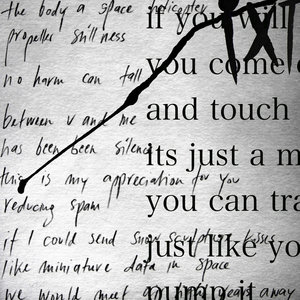 the body a space helicopter
propeller stillness
no harm can fall
between u and me
has been been silence
this is my appreciation for you
reducing spam
if I could send snow sculpture kisses
like miniature data in space
we would meet years away
if you will
you come
and touch
its just a m
you can tra
just like yo
pump it